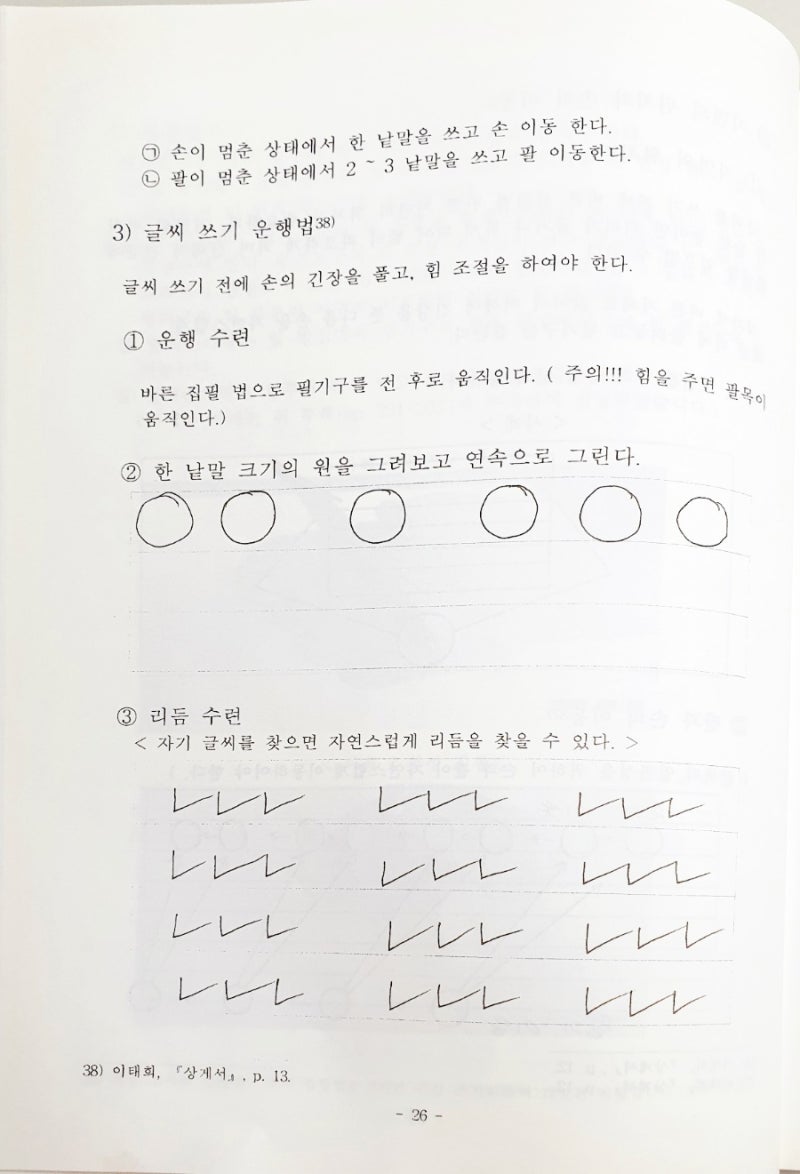 ㉠ 손이 멈춘 상태에서 한 낱말을 쓰고 손 이동 한다.
㉡ 팔이 멈춘 상태에서 2 ~ 3 낱말을 쓰고 팔 이동한다.
3) 글씨 쓰기 운행법38)
글씨 쓰기 전에 손의 긴장을 풀고, 힘 조절을 하여야 한다.
① 운행 수련
바른 집필 법으로 필기구를 전 후로 움직인다. ( 주의!!! 힘을 주면 팔목이
움직인다.)
② 한 낱말 크기의 원을 그려보고 연속으로 그린다.
③ 리듬 수련
< 자기 글씨를 찾으면 자연스럽게 리듬을 찾을 수 있다. >
38) 이태희, 『상게서』, p. 13.
- 26 -